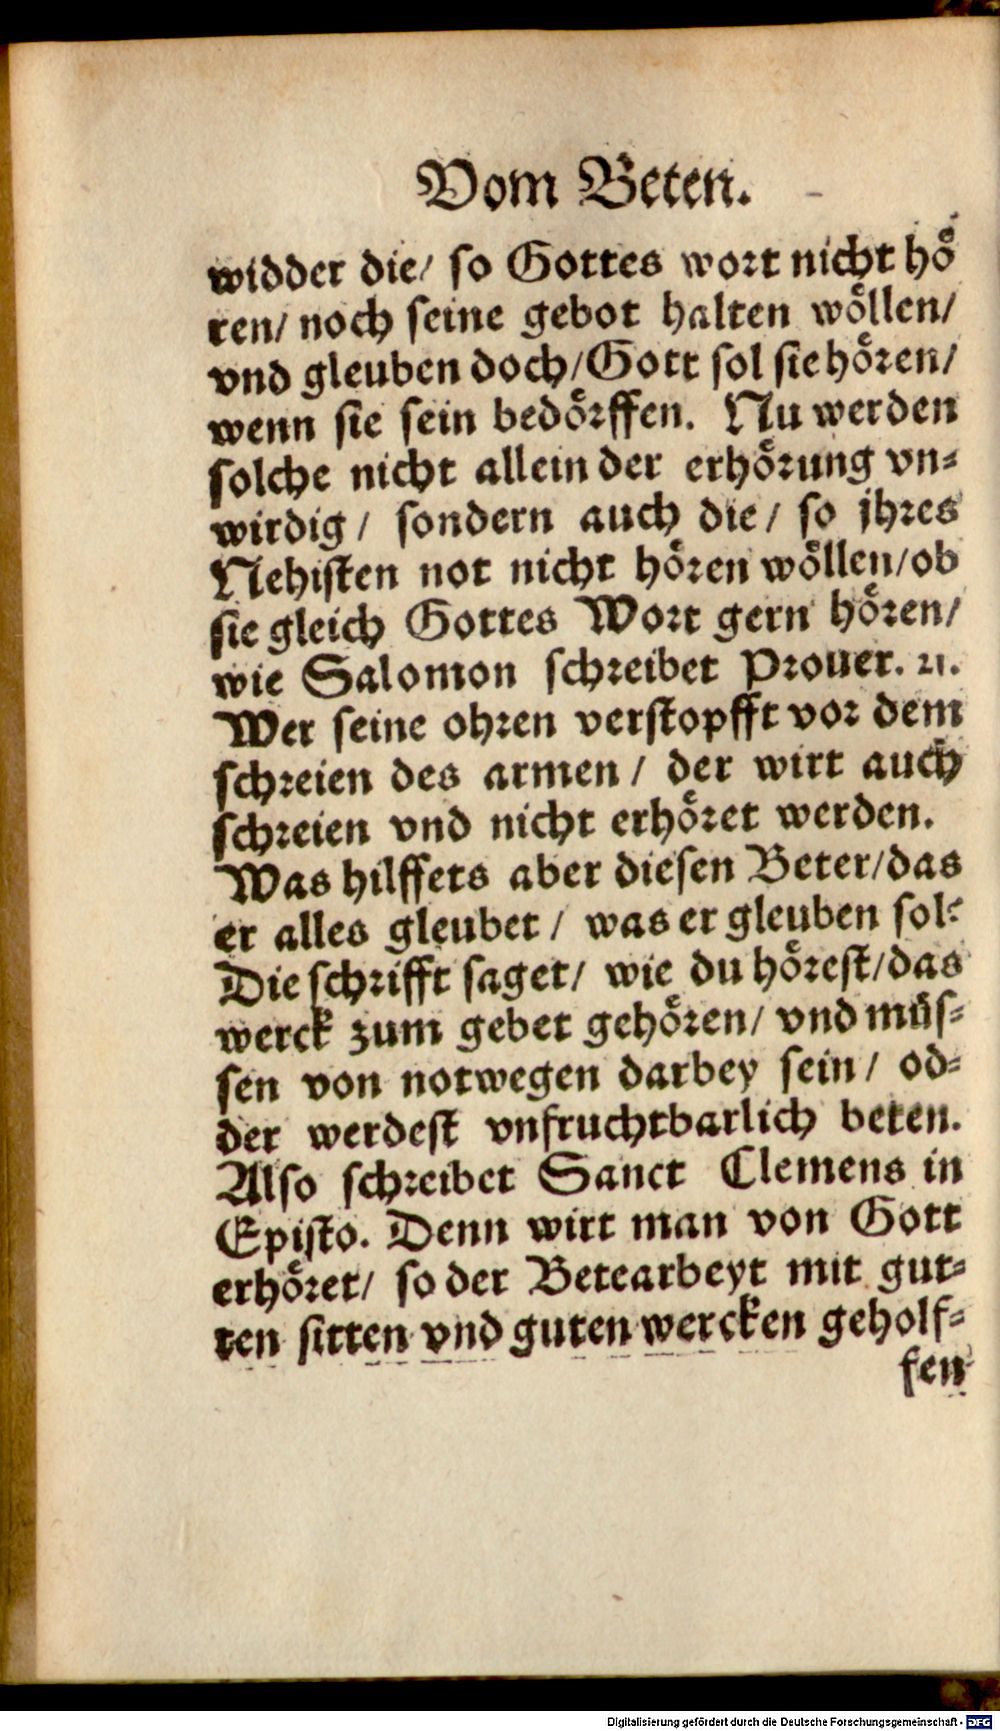 Vom Beten.
widder die/ so Gottes wort nicht hoͤ
ren/ noch seine gebot halten woͤllen/
vnd gleuben doch/Gott sol sie hoͤren/
wenn sie sein bedoͤrffen. Nu werden
solche nicht allein der erhoͤrung vn⸗
wirdig/ sondern auch die/ so jhres
Nehisten not nicht hoͤren woͤllen/ob
sie gleich Gottes Wort gern hoͤren/
wie Salomon schreibet Prouer. 21.
Wer seine ohren verstopfft vor dem
schreien des armen/ der wirt auch
schreien vnd nicht erhoͤret werden.
Was hilffets aber diesen Beter/das
er alles gleubet/ was er gleuben sol?
Die schrifft saget/ wie du hoͤrest/das
werck zum gebet gehoͤren/ vnd muͤs⸗
sen von notwegen darbey sein/ od⸗
der werdest vnfruchtbarlich beten.
Also schreibet Sanct Clemens in
Episto. Denn wirt man von Gott
erhoͤret/ so der Betearbeyt mit gut⸗
ten sitten vnd guten wercken geholf⸗
fen
Digitalisierung gefördert durch die Deutsche Forschungsgemeinschaft - DFG